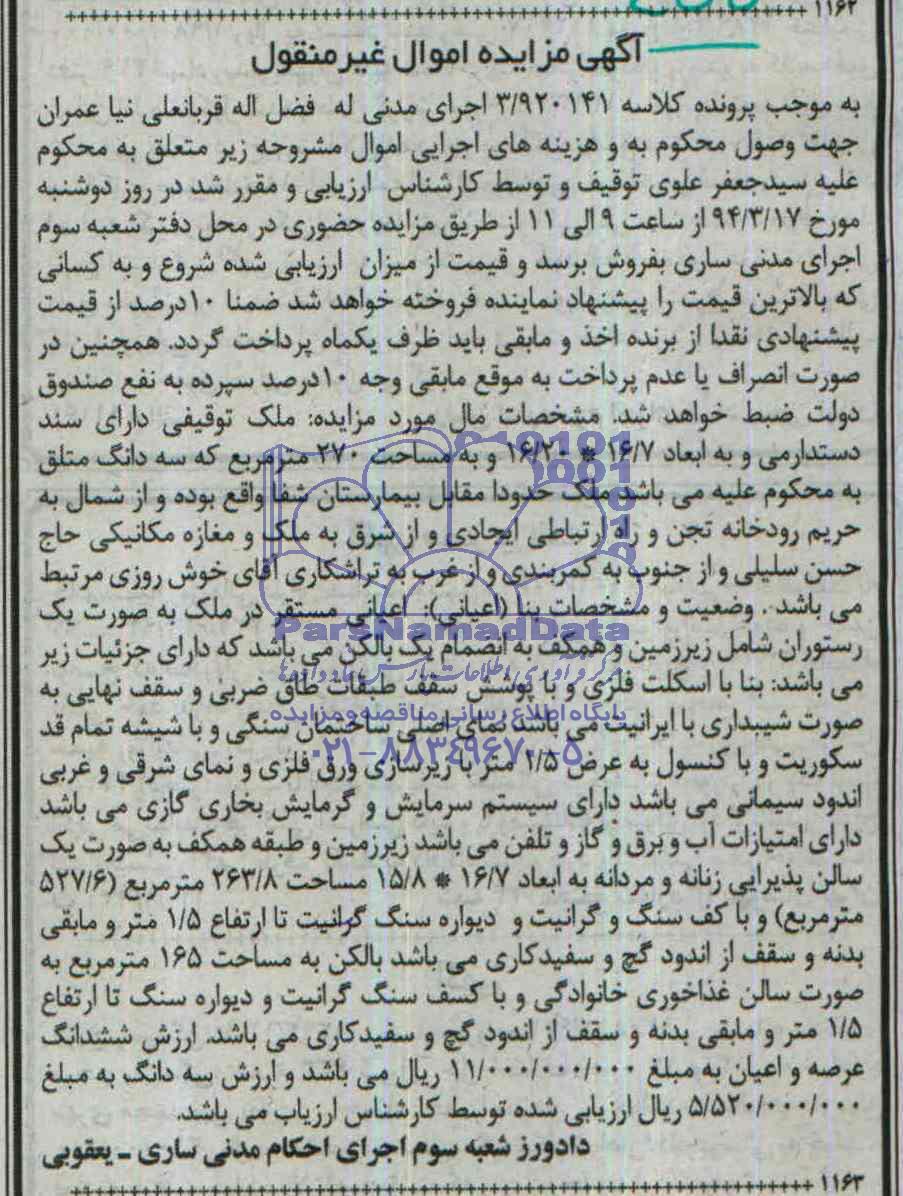 ۱۱۶۲
آگهی مزایده اموال غیرمنقول
به موجب پرونده کلاسه ۳/۹۲۰۱۴۱ اجرای مدنی له فضل اله قربانعلی نیا عمران
جهت وصول محکوم به و هزینه های اجرایی اموال مشروحه زیر متعلق به محکوم
علیه سیدجعفر علوی توقیف و توسط کارشناس ارزیابی و مقرر شد در روز دوشنبه
مورخ ۹۴/۳/۱۷ از ساعت ۹ الی ۱۱ از طریق مزایده حضوری در محل دفتر شعبه سوم
اجرای مدنی ساری بفروش برسد و قیمت از میزان ارزیابی شده شروع و به کسانی
که بالاترین قیمت را پیشنهاد نماینده فروخته خواهد شد ضمنا ۱۰درصد از قیمت
پیشنهادی نقدا از برنده اخذ و مابقی باید ظرف یکماه پرداخت گردد. همچنین در
صورت انصراف یا عدم پرداخت به موقع مابقی وجه ۱۰درصد سپرده به نفع صندوق
دولت ضبط خواهد شد. مشخصات مال مورد مزایده: ملک توقیفی دارای سند
دستدارمی و به ابعاد ۱۶/۷ * ۱۶/۲۰ و به مساحت ۲۷۰ مترمربع که سه دانگ متلق
به محکوم علیه می باشد ملک حدودا مقابل بیمارستان شفا واقع بوده و از شمال به
حریم رودخانه تجن و راه ارتباطی ایجادی و از شرق به ملک و مغازه مکانیکی حاج
حسن سلیلی و از جنوب به کمربندی و از غرب به تراشکاری آقای خوش روزی مرتبط
می باشد. وضعیت و مشخصات بنا (اعیانی): اعیانی مستقر در ملک به صورت یک
ParsNamadData
رستوران شامل زیرزمین و همکف به انضمام یک بالکن می باشد که دارای جزئیات زیر
می باشد: بنا با اسکلت فلزی و با پوشش سقف طبقات طاق ضربی و سقف نهایی به
پایگاه اطلاع رسانی مناقصه و مزایده
صورت شیبداری با ایرانیت می باشد نمای اصلی ساختمان سنگی و با شیشه تمام قد
۰۲۱-۸۸۳۴۹۶۷۰-۵
سکوریت و با کنسول به عرض ۱/۵ متر با زیرسازی ورق فلزی و نمای شرقی و غربی
اندود سیمانی می باشد دارای سیستم سرمایش و گرمایش بخاری گازی می باشد
دارای امتیازات آب و برق و گاز و تلفن می باشد زیرزمین و طبقه همکف به صورت یک
سالن پذیرایی زنانه و مردانه به ابعاد ۱۶/۷ * ۱۵/۸ مساحت ۲۶۳/۸ مترمربع (۵۲۷/۶
مترمربع) و با کف سنگ و گرانیت و دیواره سنگ گرانیت تا ارتفاع ۱/۵ متر و مابقی
بدنه و سقف از اندود گچ و سفیدکاری می باشد بالکن به مساحت ۱۶۵ مترمربع به
صورت سالن غذاخوری خانوادگی و با کسف سنگ گرانیت و دیواره سنگ تا ارتفاع
۱/۵ متر و مابقی بدنه و سقف از اندود گچ و سفیدکاری می باشد. ارزش ششدانگ
عرصه و اعیان به مبلغ ۱۱/۰۰۰/۰۰۰/۰۰۰ ریال می باشد و ارزش سه دانگ به مبلغ
۵/۵۲۰/۰۰۰/۰۰۰ ریال ارزیابی شده توسط کارشناس ارزیاب می باشد.
دادورز شعبه سوم اجرای احکام مدنی ساری ـ یعقوبی
۱۱۶۳